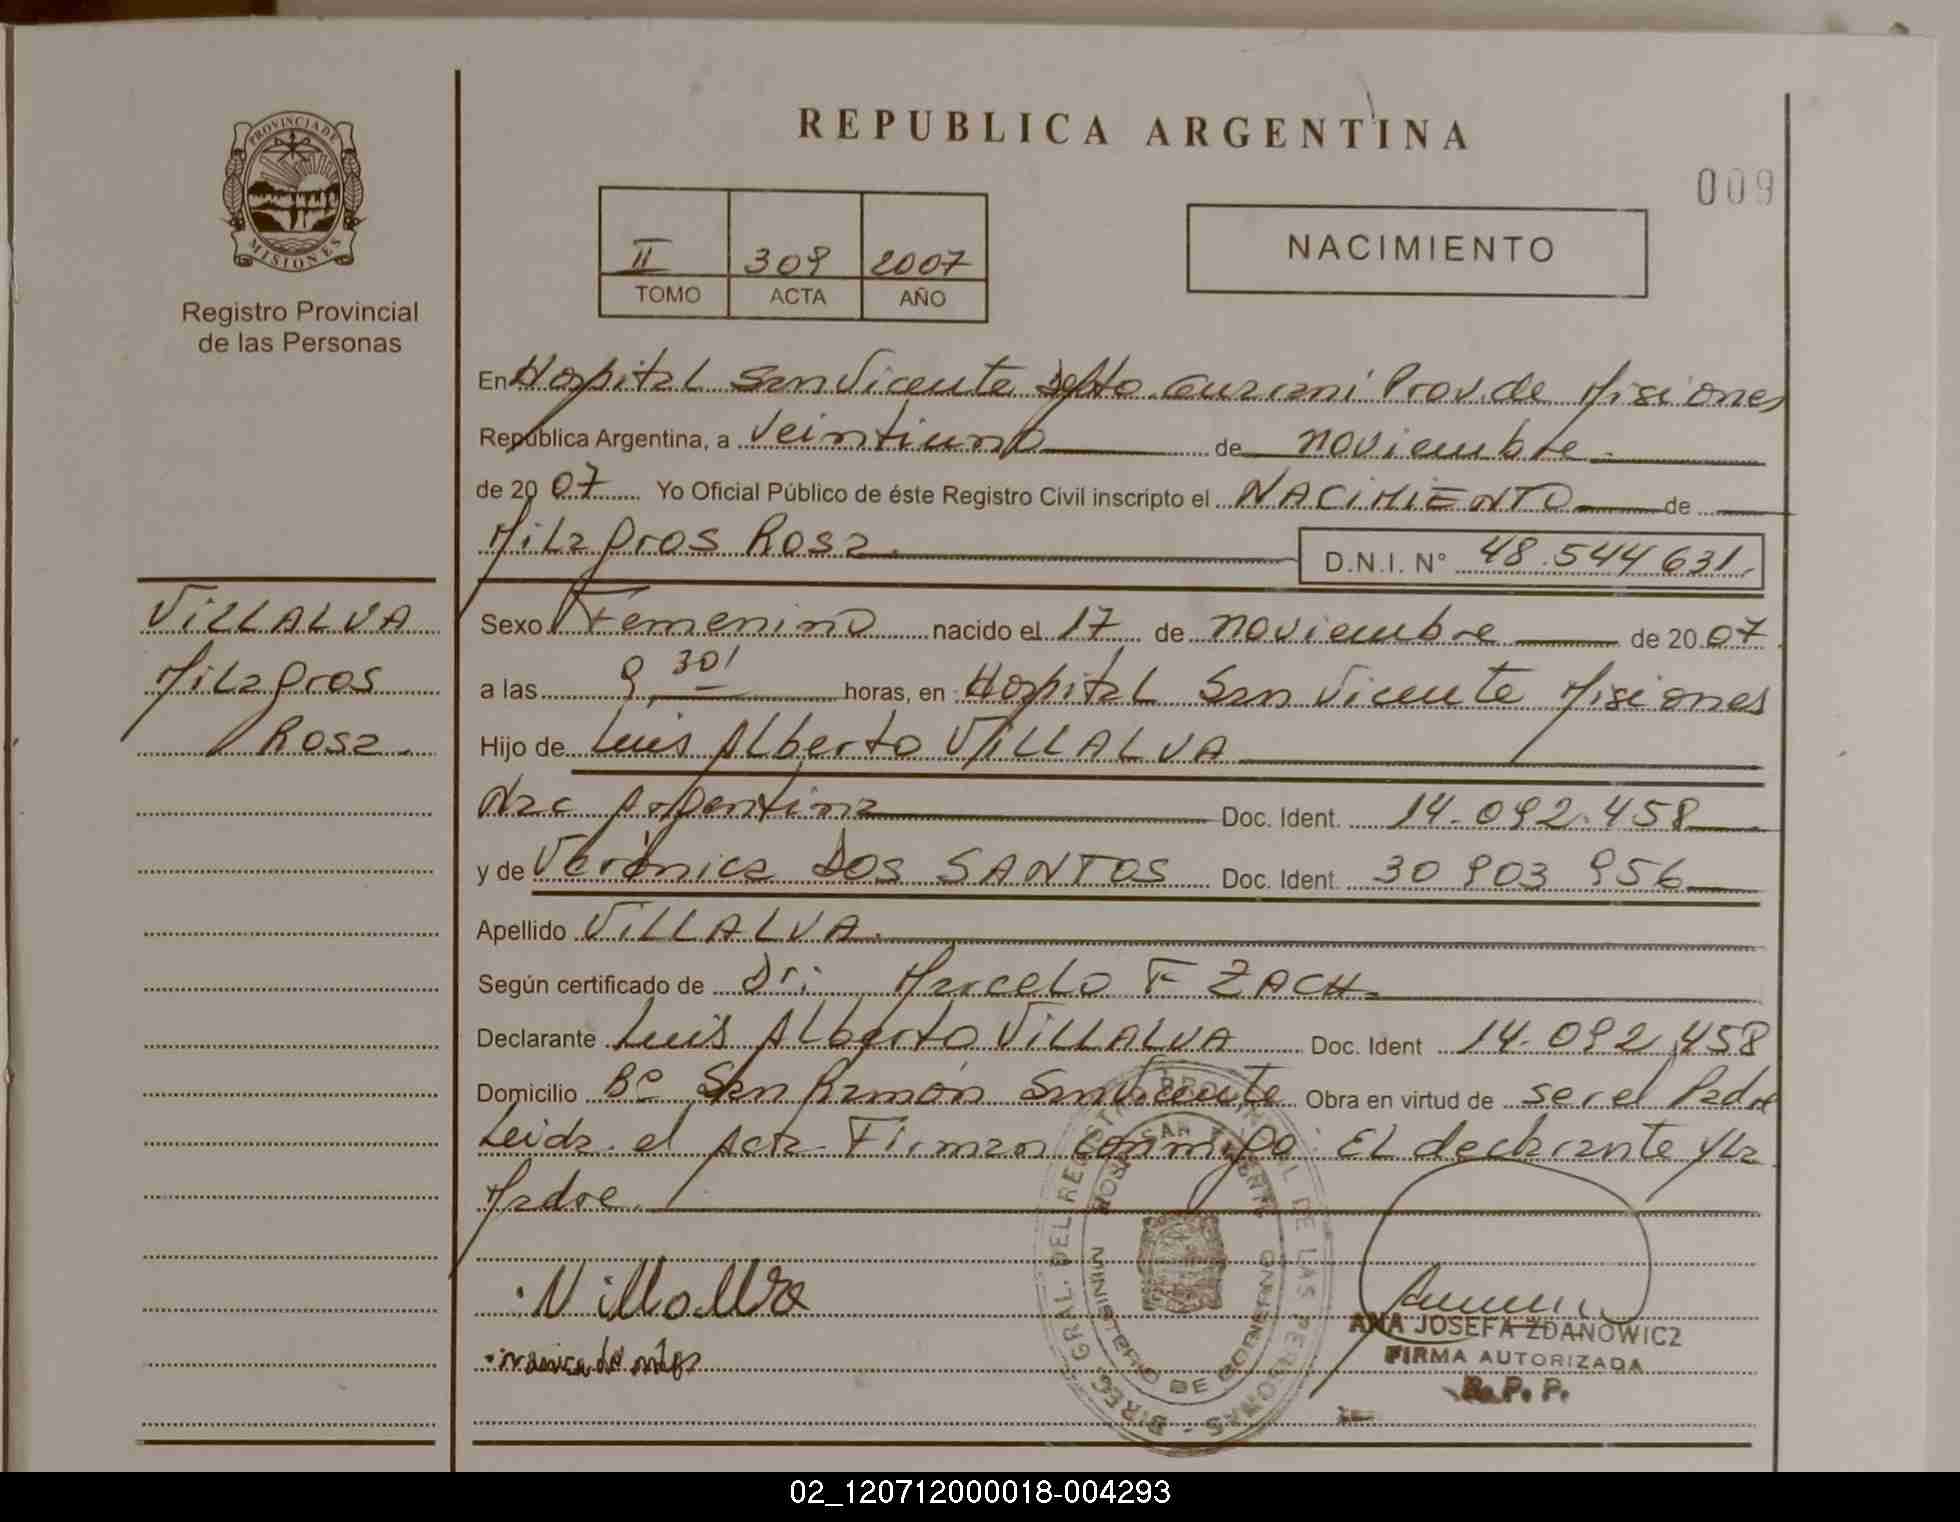 PROVINCIA DE
MISIONES
Registro Provincial
de las Personas
REPUBLICA ARGENTINA
009
II 309 2007
TOMO ACTA AÑO
NACIMIENTO
En Hospital San Vicente Depto Guaraní Prov. de Misiones
República Argentina, a veintiuno de noviembre
de 2007 Yo Oficial Público de éste Registro Civil inscripto el NACIMIENTO de
Milagros Rosa D.N.I. N° 48.544 631.
VILLALVA
Milagros
Rosa.
Sexo Femenino nacido el 17 de noviembre de 2007
a las 9,30' horas, en Hospital San Vicente Misiones
Hijo de Luis Alberto VILLALVA
Nac Argentina Doc. Ident. 14.092.458
y de Verónica DOS SANTOS Doc. Ident. 30 903 956
Apellido VILLALVA.
Según certificado de Dr: Marcelo F ZACH.
Declarante Luis Alberto VILLALVA Doc. Ident 14.092.458
Domicilio B° San Ramón San Vicente Obra en virtud de ser el Padre
Leida el Acta Firman conmigo: El declarante y la
Madre.
Villalva
DIREC. GRAL. DEL REGISTRO PROVINCIAL DE LAS PERSONAS
HOSP. SAN VICENTE
MINISTERIO DE GOBIERNO
ANA JOSEFA ZDANOWICZ
FIRMA AUTORIZADA
R. P. P.
02_120712000018-004293